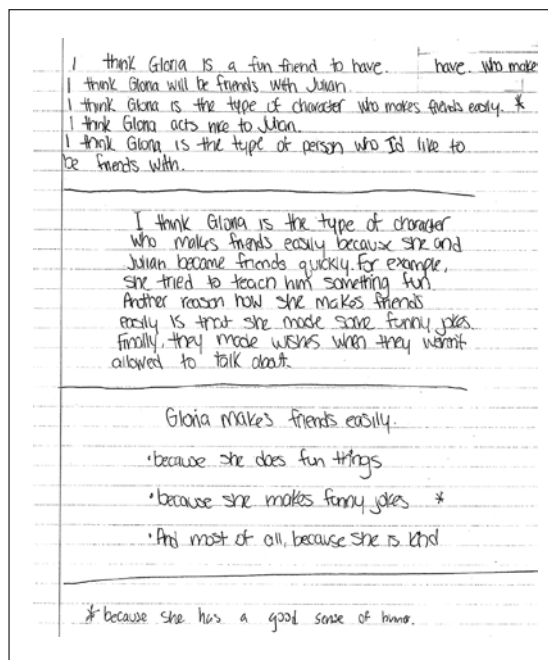 I think Gloria is a fun friend to have. have. who make
I think Gloria will be friends with Julian.
I think Gloria is the type of character who makes friends easily. *
I think Gloria acts nice to Julian.
I think Gloria is the type of person who I'd like to
be friends with.
I think Gloria is the type of character
who makes friends easily because she and
Julian became friends quickly. For example,
she tried to teach him something fun.
Another reason how she makes friends
easily is that she made some funny jokes.
Finally, they made wishes when they weren't
allowed to talk about.
Gloria makes friends easily.
•because she does fun things
•because she makes funny jokes *
•And most of all, because she is kind
* because she has a good sense of humor.